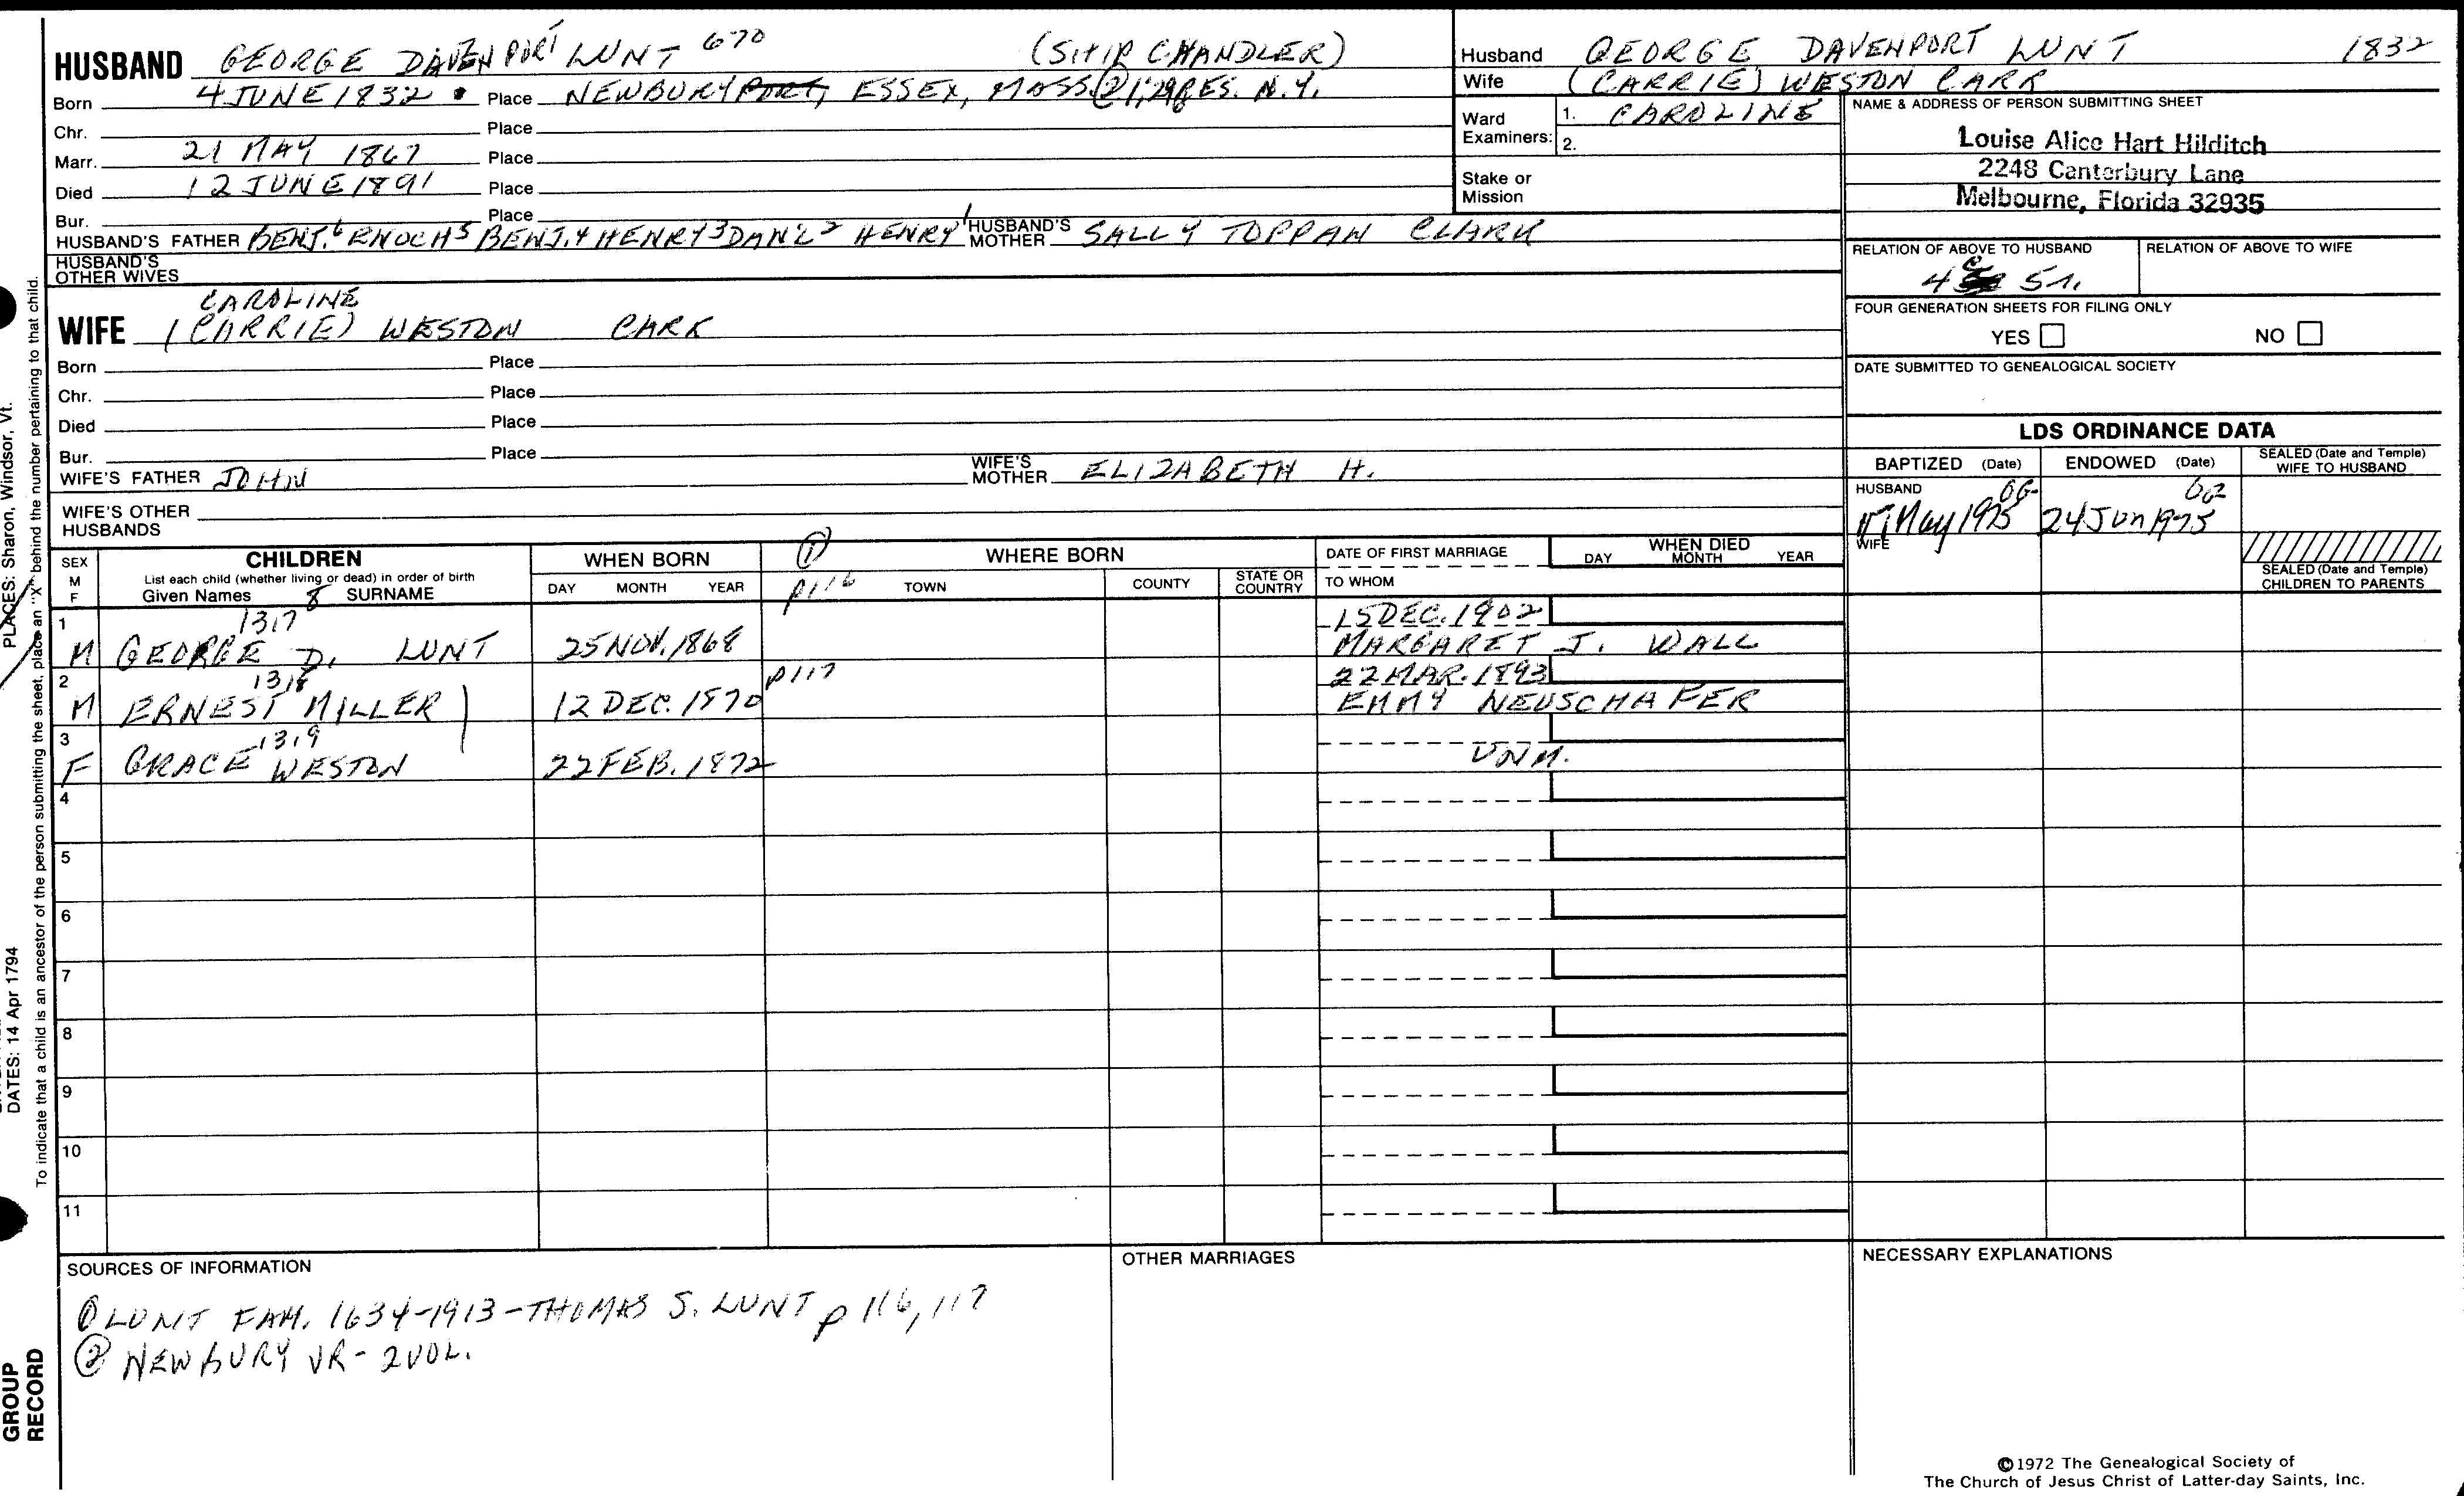 HUSBAND GEORGE DAVENPORT LUNT 670 (SHIP CHANDLER)
Born 4 JUNE 1832 Place NEWBURYPORT, ESSEX, MASS. RES. N.Y.
Chr. Place
Marr. 21 MAY 1867 Place
Died 12 JUNE 1891 Place
Bur. Place
HUSBAND'S FATHER BENJ.6 ENOCH5 BENJ.4 HENRY3 DAN'L2 HENRY1 HUSBAND'S MOTHER SALLY TOPPAN CLARK
HUSBAND'S OTHER WIVES
CAROLINE
WIFE (CARRIE) WESTON CARR
Born Place
Chr. Place
Died Place
Bur. Place
WIFE'S FATHER JOHN WIFE'S MOTHER ELIZABETH H.
WIFE'S OTHER HUSBANDS
Husband GEORGE DAVENPORT LUNT 1832
Wife (CARRIE) WESTON CARR
Ward Examiners: 1. CAROLINE
2.
Stake or Mission
NAME & ADDRESS OF PERSON SUBMITTING SHEET
Louise Alice Hart Hilditch
2248 Canterbury Lane
Melbourne, Florida 32935
RELATION OF ABOVE TO HUSBAND RELATION OF ABOVE TO WIFE
4 C 5 r.
FOUR GENERATION SHEETS FOR FILING ONLY
YES NO
DATE SUBMITTED TO GENEALOGICAL SOCIETY
LDS ORDINANCE DATA
BAPTIZED (Date) ENDOWED (Date) SEALED (Date and Temple) WIFE TO HUSBAND
HUSBAND OG OG
May 1975 24 Jun 1975
WIFE
SEALED (Date and Temple) CHILDREN TO PARENTS
SEX M F CHILDREN WHEN BORN ① WHERE BORN DATE OF FIRST MARRIAGE WHEN DIED
List each child (whether living or dead) in order of birth
Given Names 8 SURNAME DAY MONTH YEAR p116 TOWN COUNTY STATE OR COUNTRY TO WHOM DAY MONTH YEAR
1 1317 15 DEC. 1902
M GEORGE D. LUNT 25 NOV. 1868 MARGARET J. WALL
2 1318 p117 22 MAR. 1893
M ERNEST MILLER 12 DEC. 1870 EMMY NEUSCHAFER
3 1319
F GRACE WESTON 22 FEB. 1872 UNM.
4
5
6
7
8
9
10
11
SOURCES OF INFORMATION
① LUNT FAM. 1634-1913 - THOMAS S. LUNT p 116, 117
② NEWBURY VR - 2 VOL.
OTHER MARRIAGES
NECESSARY EXPLANATIONS
©1972 The Genealogical Society of
The Church of Jesus Christ of Latter-day Saints, Inc.
PLACES: Sharon, Windsor, Vt.
DATES: 14 Apr 1794
To indicate that a child is an ancestor of the person submitting the sheet, place an "X" behind the number pertaining to that child.
GROUP
RECORD